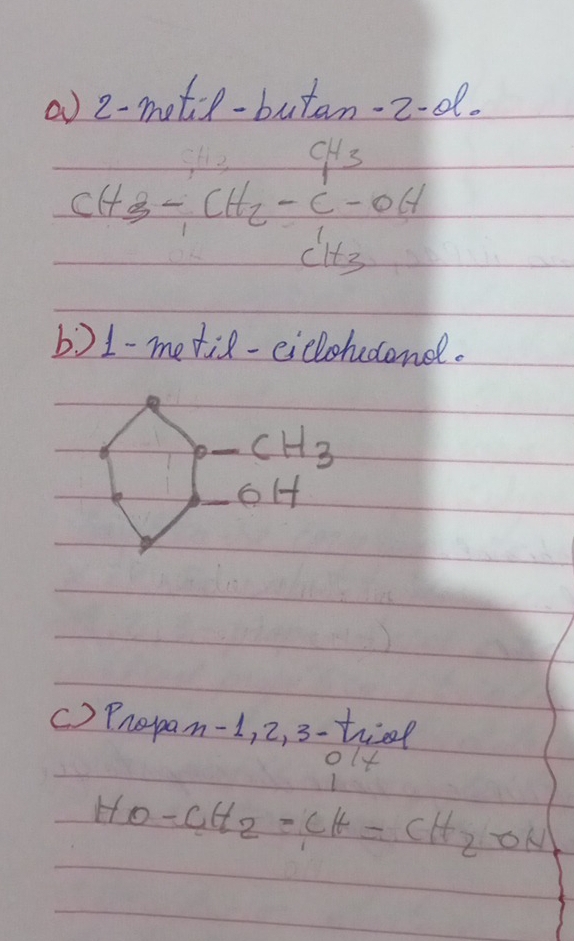 a) 2-metil-butan-2-ol.
CH3
CH3 - CH2 - C - OH
CH3
b) 1-metil-ciclohexanol.
CH3
OH
c) Propan-1,2,3-triol
OH
HO-CH2-CH-CH2-OH